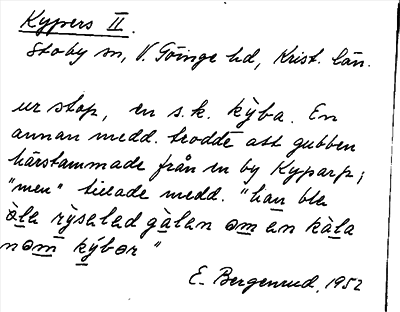 Kypers II.
Stoby sn, V. Göinge hd, Krist. län.
ur stop, en s.k. kỳba. En
annan medd. trodde att gubben
härstammade från en by Kyparp;
"men" tillade medd. "han ble
òla rỳsalad gàlan əm an kàla
nəm kýbər"
E. Bergenrud, 1952